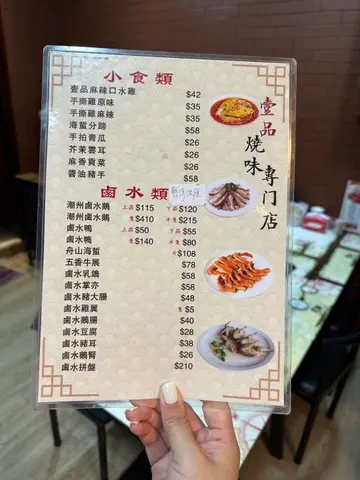 小食類
壹品麻辣口水雞 $42
手撕雞原味 $35
手撕雞麻辣 $35
海蜇分蹄 $58
手拍青瓜 $26
芥茉雲耳 $26
麻香貢菜 $26
醬油豬手 $58
鹵水類
潮州鹵水鵝 上莊 $115 下莊 $120
潮州鹵水鵝 隻 $410 半隻 $215
鹵水鴨 上莊 $50 下莊 $55
鹵水鴨 隻 $140 半隻 $80
舟山海蜇 $108
五香牛展 $78
鹵水乳鴿 $58
鹵水掌亦 $58
鹵水豬大腸 $48
鹵水雞翼 隻 $5
鹵水鵝腸 $40
鹵水豆腐 $28
鹵水豬耳 $38
鹵水鵝腎 $26
鹵水拼盤 $210
壹品
燒味
專門店